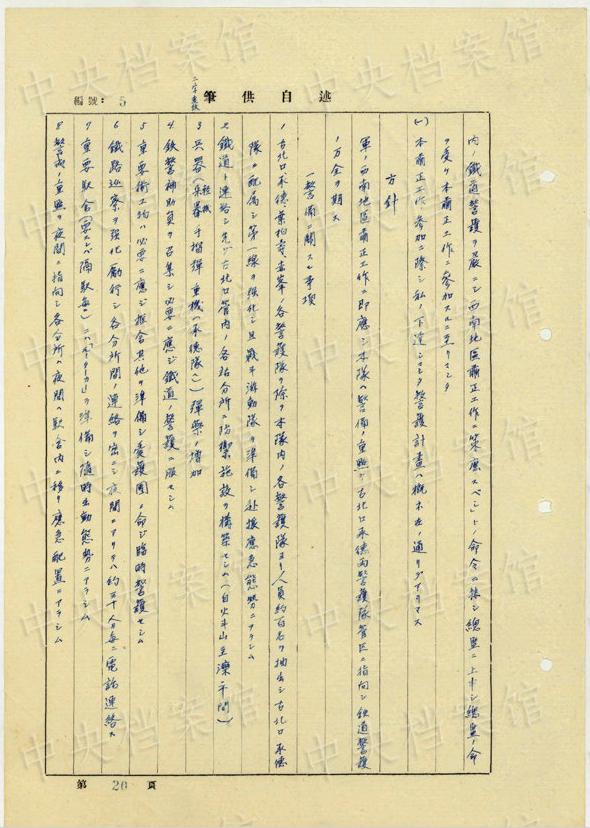 編號：5
筆供自述
内ノ鐵道警護ヲ嚴ニシ西南地區肅正工作ニ策應スベシトノ命令ニ接シ總監ニ上申シ總監ノ命
ヲ受ケ本肅正工作ニ參加スルニ至リマシタ
(一)本肅正工作參加ニ際シ私ノ下達シマシタ警護計畫ハ概ネ左ノ通リデアリマス
方針
軍ノ西南地區肅正工作ニ即應シ本隊ハ警備ノ重點ヲ古北口承德兩警護隊管區ニ指向シ鉄道警護
ノ万全ヲ期ス
一警備ニ関スル事項
1 古北口承德葉柏壽赤峯ノ各警護隊ヲ除ク本隊内ノ各警護隊ヨリ人員約百名ヲ抽出シ古北口承德
隊ニ配属シ第一線ヲ強化シ且戰斗游動隊ヲ準備シ赴援應急態勢ニアラシム
2 鐵道ト連絡シ先ヅ古北口管内ノ各站分所ニ防禦施設ヲ構築セシム(自火斗山至灤平間)
3 兵器(軽機
手榴彈 重機(承德隊ニ)彈藥ノ増加
4 鉄警補助員ヲ召集シ必要ニ應ジ鐵道ノ警護ニ服セシム
5 重要術工物ハ必要ニ應ジ掩舍其他ヲ準備シ愛護團ニ命ジ臨時警護セシム
6 鐵路巡察ヲ強化励行シ各分所間ノ連絡ヲ密ニシ夜間ニアリテハ約三十分毎ニ電話連絡ス
7 重要駅舍(要スレバ隔駅毎)ニハ「モーターカー」ヲ準備シ隨時出動態勢ニアラシム
8 警戒ノ重點ヲ夜間ニ指向シ各分所ハ夜間ハ駅舍内ニ移リ應急配置ニアラシム
第 20 頁
中央档案馆